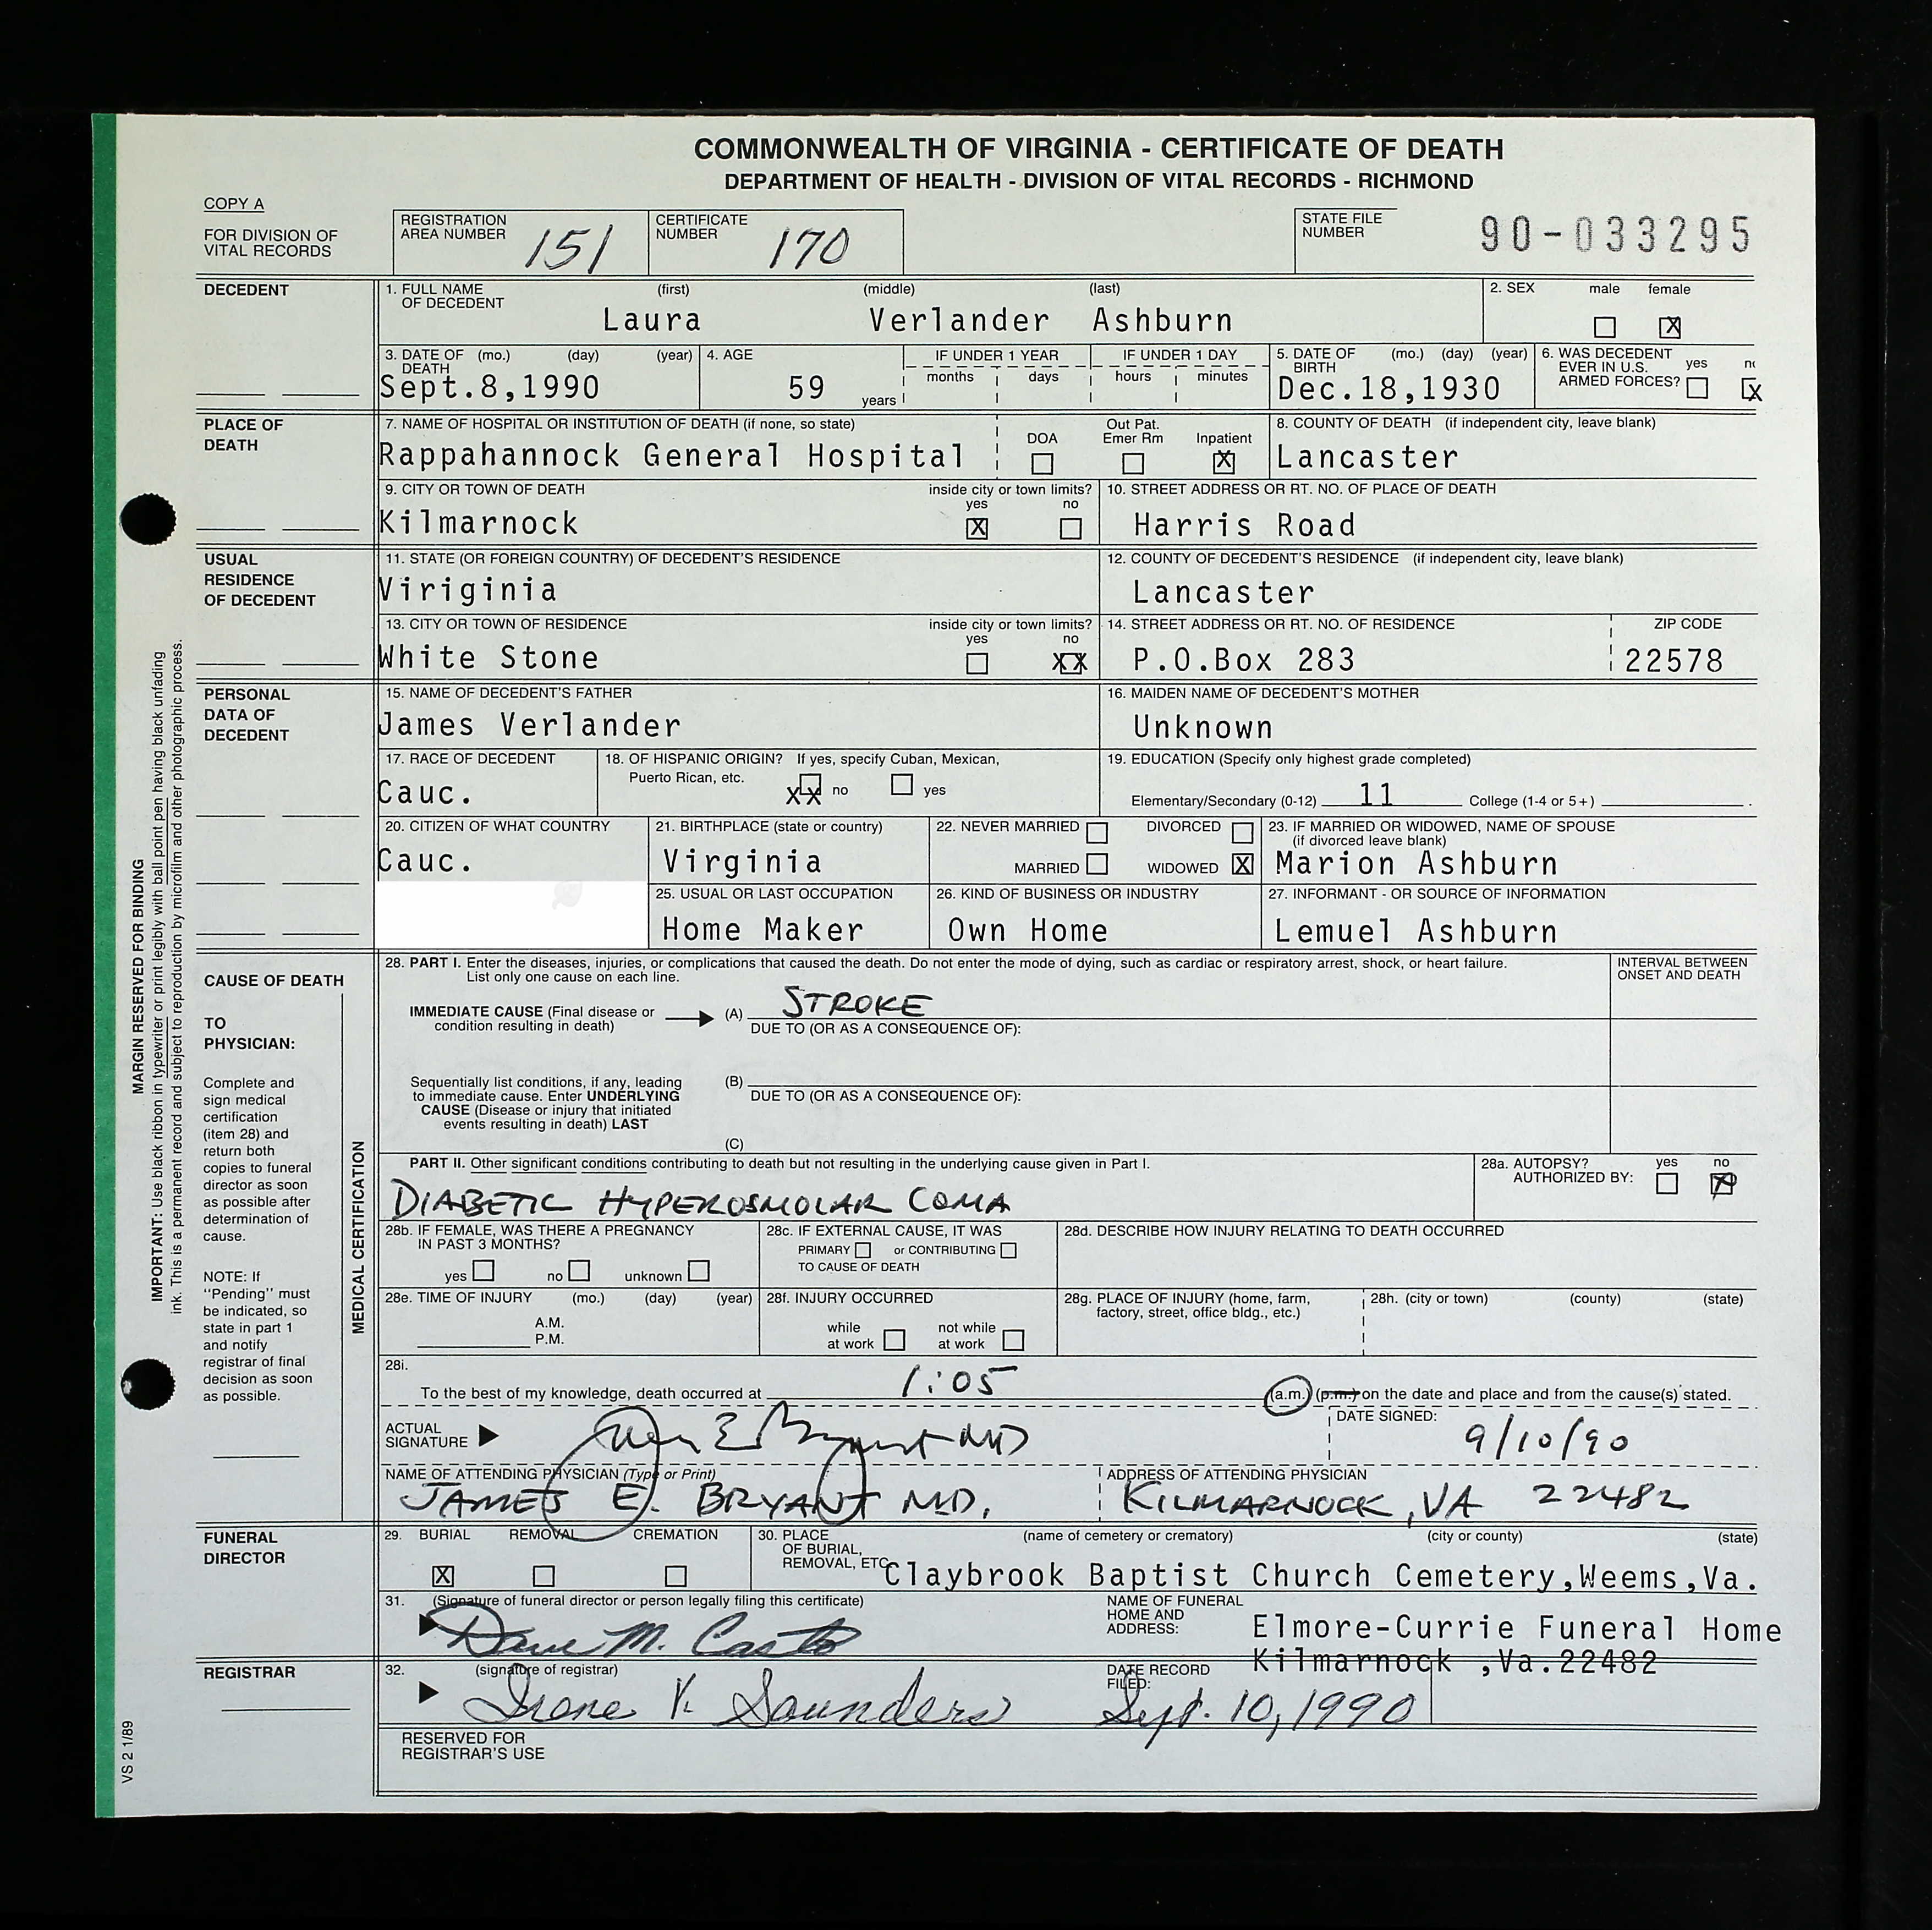 COMMONWEALTH OF VIRGINIA - CERTIFICATE OF DEATH
DEPARTMENT OF HEALTH - DIVISION OF VITAL RECORDS - RICHMOND
COPY A
FOR DIVISION OF
VITAL RECORDS
REGISTRATION
AREA NUMBER 151
CERTIFICATE
NUMBER 170
STATE FILE
NUMBER 90-033295
DECEDENT
1. FULL NAME (first) (middle) (last)
OF DECEDENT
Laura Verlander Ashburn
2. SEX male female
X
3. DATE OF (mo.) (day) (year)
DEATH
Sept.8,1990
4. AGE
59 years
IF UNDER 1 YEAR
months days
IF UNDER 1 DAY
hours minutes
5. DATE OF (mo.) (day) (year)
BIRTH
Dec.18,1930
6. WAS DECEDENT
EVER IN U.S.
ARMED FORCES? yes
X
PLACE OF
DEATH
7. NAME OF HOSPITAL OR INSTITUTION OF DEATH (if none, so state)
Rappahannock General Hospital
DOA
Out Pat.
Emer Rm
Inpatient
X
8. COUNTY OF DEATH (if independent city, leave blank)
Lancaster
9. CITY OR TOWN OF DEATH
Kilmarnock
inside city or town limits?
yes no
X
10. STREET ADDRESS OR RT. NO. OF PLACE OF DEATH
Harris Road
USUAL
RESIDENCE
OF DECEDENT
11. STATE (OR FOREIGN COUNTRY) OF DECEDENT'S RESIDENCE
Viriginia
12. COUNTY OF DECEDENT'S RESIDENCE (if independent city, leave blank)
Lancaster
13. CITY OR TOWN OF RESIDENCE
White Stone
inside city or town limits?
yes no
XX
14. STREET ADDRESS OR RT. NO. OF RESIDENCE
P.O.Box 283
ZIP CODE
22578
PERSONAL
DATA OF
DECEDENT
15. NAME OF DECEDENT'S FATHER
James Verlander
16. MAIDEN NAME OF DECEDENT'S MOTHER
Unknown
17. RACE OF DECEDENT
Cauc.
18. OF HISPANIC ORIGIN? If yes, specify Cuban, Mexican,
Puerto Rican, etc. XX no yes
19. EDUCATION (Specify only highest grade completed)
Elementary/Secondary (0-12) 11 College (1-4 or 5+)
20. CITIZEN OF WHAT COUNTRY
Cauc.
21. BIRTHPLACE (state or country)
Virginia
22. NEVER MARRIED DIVORCED
MARRIED WIDOWED X
23. IF MARRIED OR WIDOWED, NAME OF SPOUSE
(if divorced leave blank)
Marion Ashburn
25. USUAL OR LAST OCCUPATION
Home Maker
26. KIND OF BUSINESS OR INDUSTRY
Own Home
27. INFORMANT - OR SOURCE OF INFORMATION
Lemuel Ashburn
CAUSE OF DEATH
TO
PHYSICIAN:
Complete and
sign medical
certification
(item 28) and
return both
copies to funeral
director as soon
as possible after
determination of
cause.
NOTE: If
"Pending" must
be indicated, so
state in part 1
and notify
registrar of final
decision as soon
as possible.
MEDICAL CERTIFICATION
28. PART I. Enter the diseases, injuries, or complications that caused the death. Do not enter the mode of dying, such as cardiac or respiratory arrest, shock, or heart failure.
List only one cause on each line.
INTERVAL BETWEEN
ONSET AND DEATH
IMMEDIATE CAUSE (Final disease or
condition resulting in death)
(A) STROKE
DUE TO (OR AS A CONSEQUENCE OF):
Sequentially list conditions, if any, leading
to immediate cause. Enter UNDERLYING
CAUSE (Disease or injury that initiated
events resulting in death) LAST
(B)
DUE TO (OR AS A CONSEQUENCE OF):
(C)
PART II. Other significant conditions contributing to death but not resulting in the underlying cause given in Part I.
DIABETIC HYPEROSMOLAR COMA
28a. AUTOPSY? yes no
AUTHORIZED BY:
28b. IF FEMALE, WAS THERE A PREGNANCY
IN PAST 3 MONTHS?
yes no unknown
28c. IF EXTERNAL CAUSE, IT WAS
PRIMARY or CONTRIBUTING
TO CAUSE OF DEATH
28d. DESCRIBE HOW INJURY RELATING TO DEATH OCCURRED
28e. TIME OF INJURY (mo.) (day) (year)
A.M.
P.M.
28f. INJURY OCCURRED
while
at work
not while
at work
28g. PLACE OF INJURY (home, farm,
factory, street, office bldg., etc.)
28h. (city or town) (county) (state)
28i.
To the best of my knowledge, death occurred at 1:05 (a.m.) (p.m.) on the date and place and from the cause(s) stated.
ACTUAL
SIGNATURE James E Bryant MD
DATE SIGNED:
9/10/90
NAME OF ATTENDING PHYSICIAN (Type or Print)
JAMES E. BRYANT M.D.
ADDRESS OF ATTENDING PHYSICIAN
KILMARNOCK, VA 22482
FUNERAL
DIRECTOR
29. BURIAL REMOVAL CREMATION
X
30. PLACE
OF BURIAL,
REMOVAL, ETC.
(name of cemetery or crematory) (city or county) (state)
Claybrook Baptist Church Cemetery,Weems,Va.
31. (Signature of funeral director or person legally filing this certificate)
M. Casto
NAME OF FUNERAL
HOME AND
ADDRESS:
Elmore-Currie Funeral Home
Kilmarnock ,Va.22482
REGISTRAR
32. (signature of registrar)
Irene V. Saunders
DATE RECORD
FILED:
Sept. 10, 1990
RESERVED FOR
REGISTRAR'S USE
MARGIN RESERVED FOR BINDING
IMPORTANT: Use black ribbon in typewriter or print legibly with ball point pen having black unfading
ink. This is a permanent record and subject to reproduction by microfilm and other photographic process.
VS 2 1/89